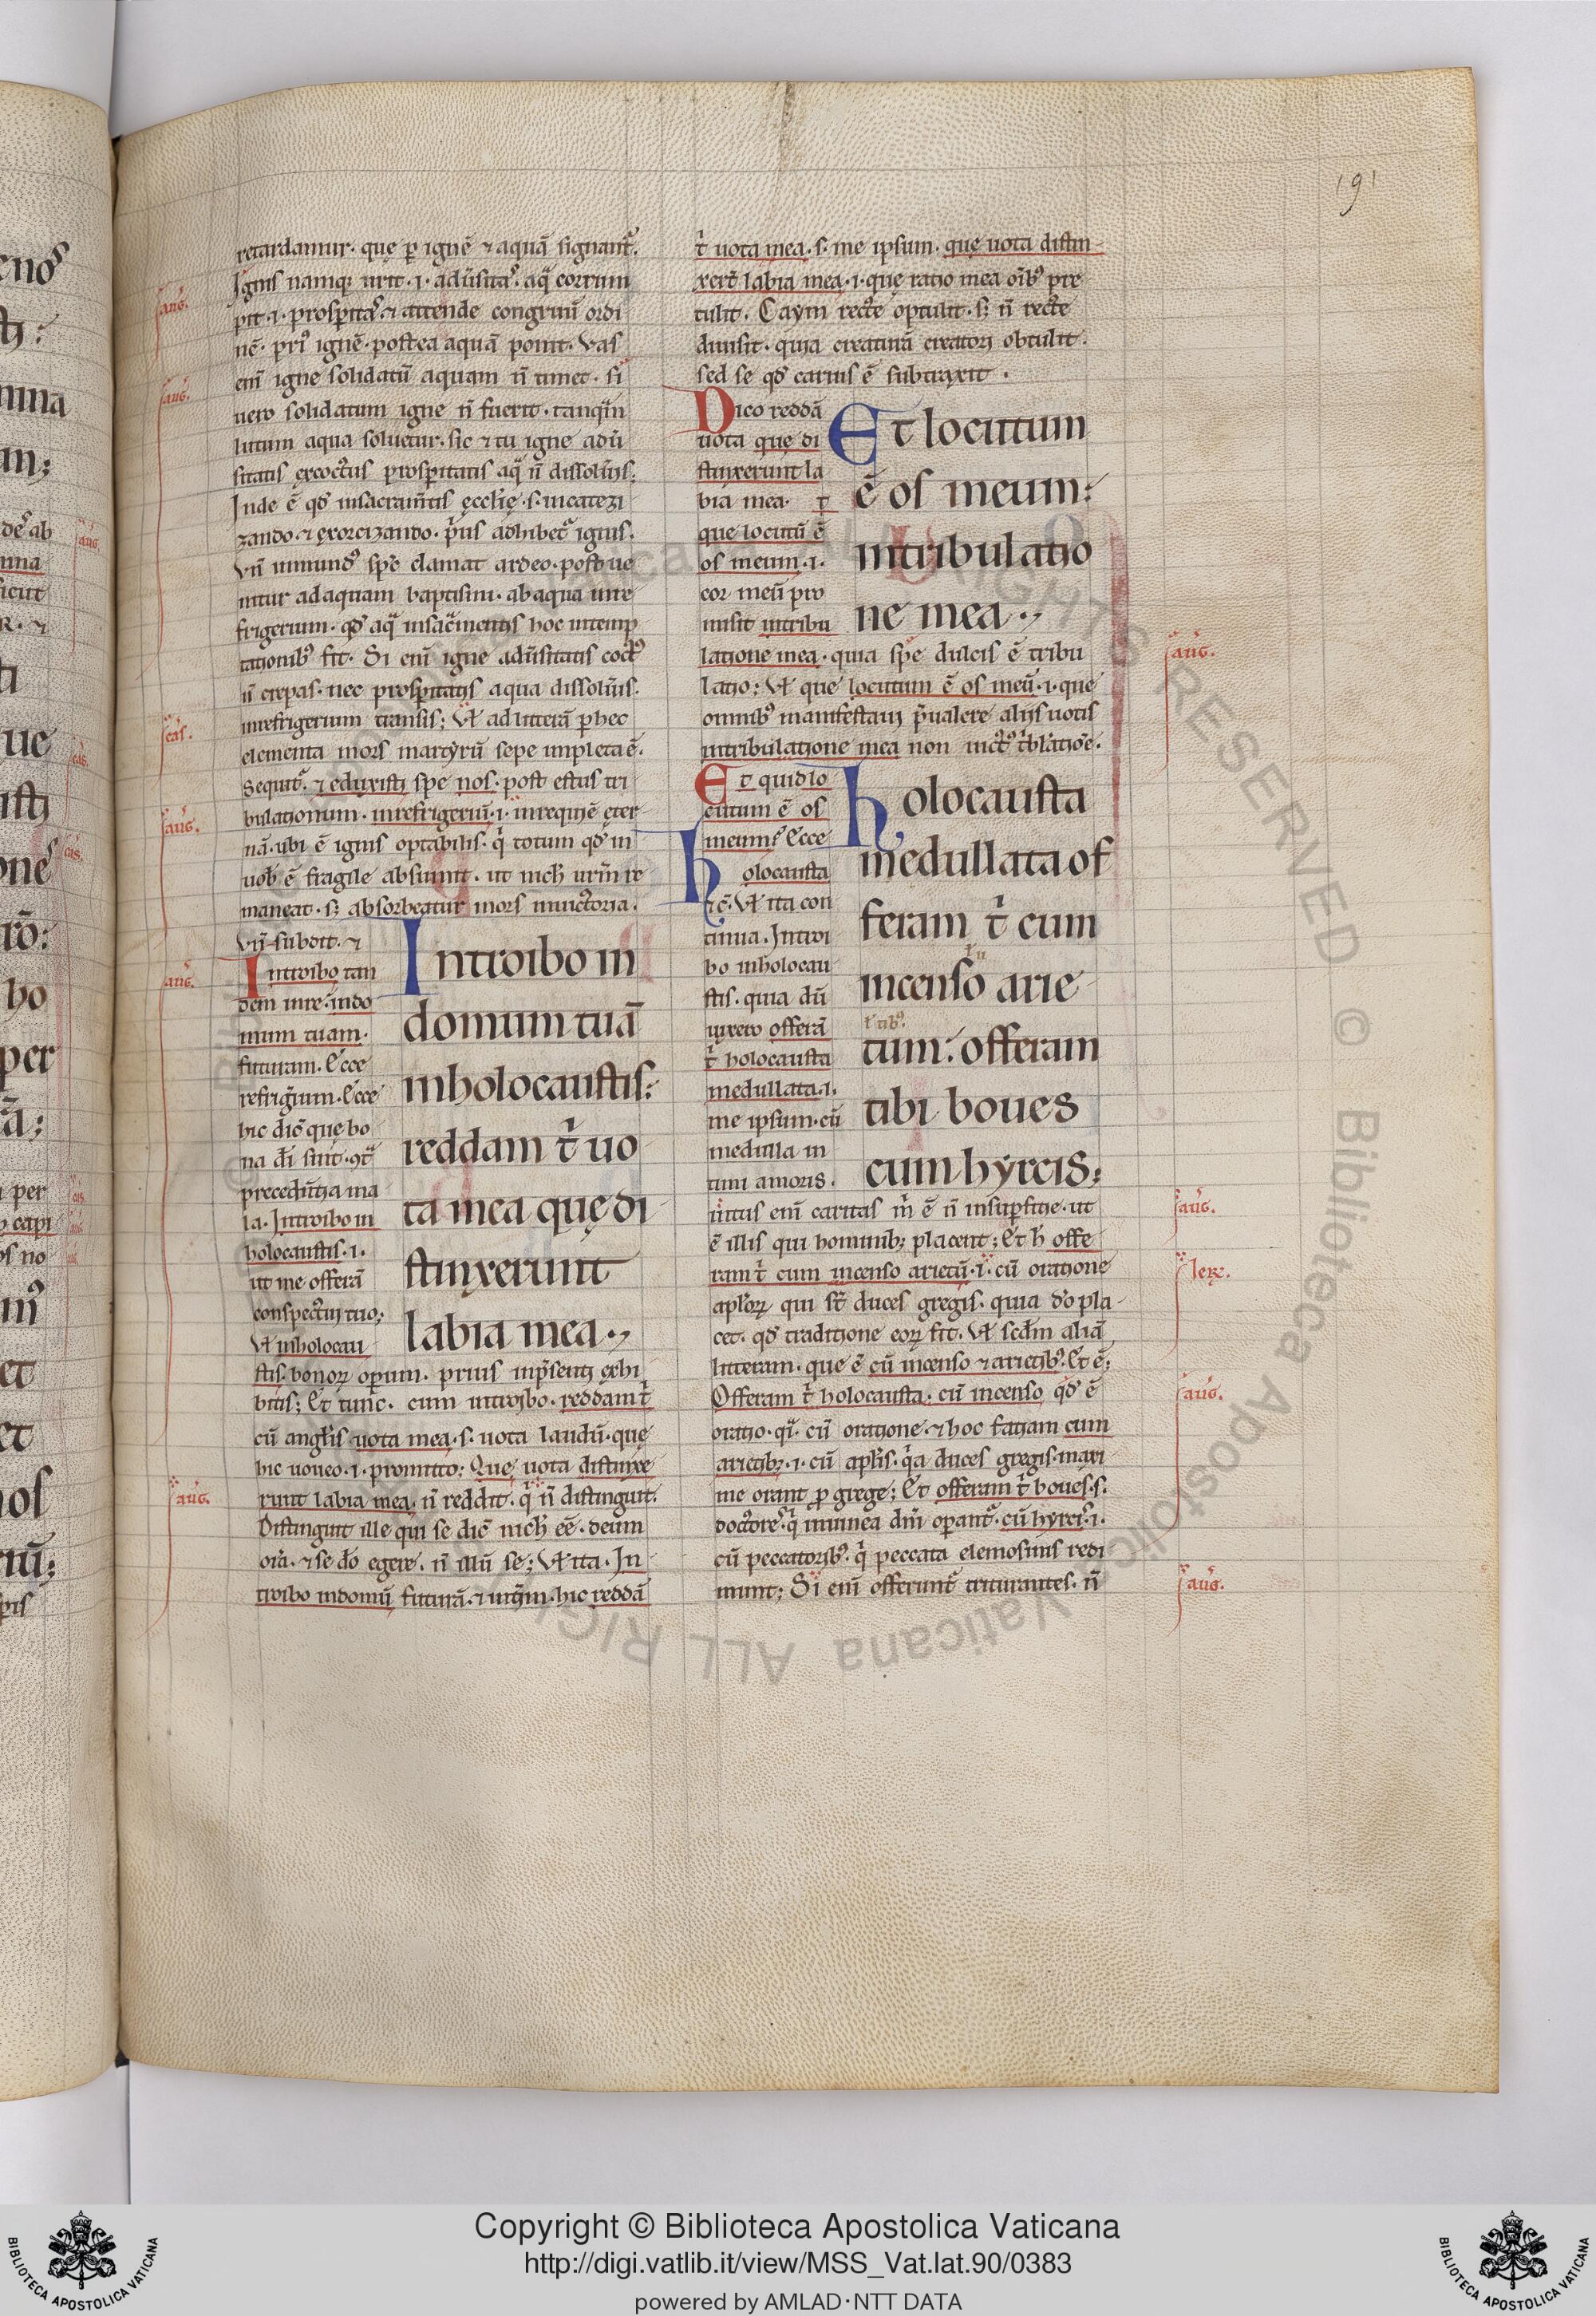 191
retardamur. que ꝑ ignē ⁊ aquā signant᷑.
Ignis namq; urit .i. adūsitas. aq̄ corrum
pit .i. prosꝑitas ⁊ attende congruū ordi
nē. pri᷒ ignē. postea aquā ponit. Vas
enī igne solidatū aquam n̄ timet. si
uero solidatum igne n̄ fuerit. tanq̄m
lutum aqua soluetur. sic ⁊ tu igne adū
sitatis excoctus prosꝑitatis aq̄ n̄ dissolūis;
Inde ē qd̄ insacram̄tis ęcclīę .s. incatezi
zando. ⁊ exorcizando. p̄us adhibet᷑ ignis.
Vn̄ inmund᷒ sp̄c clamat ardeo. post ue
nitur adaquam baptismi. abaqua inre
frigerium. qd̄ aq̄ insac̄mentis hoc intemp
tationib᷒ fit. Si enī igne adūsitatis coct᷒
n̄ crepas. nec prosꝑitatis aqua dissolūis.
inrefrigerium transis; Vł ad litterā ꝑ hec
elementa mors martyrū sepe impleta ē.
Sequit᷑. ⁊ eduxisti spe nos. post estus tri
bulationum. inrefrigeriū .i. inrequiē eter
nā. ubi ē ignis optabilis. q̄ totum qd̄ in
uob̄ ē fragile absumit. ut nich̄ urm̄ re
maneat. s; absorbeatur mors inuictoria.
Vn̄ subdit. ⁊
Introibo tan
dem inre. indo
mum tuam.
futuram. Ecce
refrigium. Ecce
hic dic̄ que bo
na dī sint. ꝯt̄
precedētia ma
la. Introibo in
holocaustis .i.
ut me offerā
conspectui tuo;
Vł inholocau
stis. bonoꝝ oꝑum. prius inp̄senti exhi
bitis; Et tunc. cum introibo. reddam t̄
cū angl̄is uota mea .s. uota laudū. que
hic uoueo .i. promitto; Que uota distinxe
runt labia mea. n̄ reddit. q̄ n̄ distinguit.
Distinguit ille qui se dic̄ nich̄ eē. deum
oīa. ⁊ se dō egere. n̄ illū se; Vł ita. In
troibo indomū futurā. ⁊ int̄im. hic reddā
Introibo in
domum tuā
inholocaustis:
reddam t̄ uo
ta mea quę di
stinxerunt
labia mea.,
t̄ uota mea .s. me ipsum. que uota distin
xert̄ labia mea .i. que ratio mea oīb᷒ pre
tulit. Caym recte optulit. s; n̄ recte
diuisit. quia creaturā creatori obtulit.
sed se qd̄ carius ē subtraxit.
Dico reddā
uota que di
stinxerunt la
bia mea. ⁊
que locutū ē
os meum .i.
cor meū pro
misit intribu
latione mea. quia spe dulcis ē tribu
latio; Vł que locutum ē os meū .i. que
omnib᷒ manifestaui p̄ualere alijs uotis
intribulatione mea non
Et locutum
ē os meum:
intribulatio
ne mea.,
Et quid lo
cutum ē os
meum? Ecce
holocausta
⁊c̄. Vł ita con
tinua. Introi
bo inholocau
stis. quia dū
uixero offerā
t̄ holocausta
medullata .i.
me ipsum. cū
medulla in
timi amoris.
Holocausta
medullata of
feram t̄ cum
incenso arie
tum: offeram
tibi boues
cum hyrcis;
Intus enī caritas m̄ ē n̄ insuꝑficie. ut
ē illis qui hominib; placent; Et h̄ offe
ram t̄ cum incenso arietū .i. cū oratione
apl̄oꝝ qui st̄ duces gregis. quia dō pla
cet. qd̄ traditione eoꝝ fit. Vł scdm̄ aliā
litteram. que ē cū incenso ⁊ arietib᷒. Et ē;
Offeram t̄ holocausta. cū incenso qd̄ ē
oratio. cū oratione. ⁊ hoc faciam cum
arietib; .i. cū apl̄is. q̄a duces gregis. maxi
me orant ꝓ grege; Et offeram t̄ boues .s.
doctores q̄ inuinea dn̄i oꝑant᷑. cū hyrcis .i.
cū peccatorib᷒. q̄ peccata elemosinis redi
munt; Si enī offerunt᷑ triturantes. n̄
aug.
aug.
cas.
aug.
aug.
aug.
aug.
aug.
Ier.
aug.
aug.
Copyright © Biblioteca Apostolica Vaticana
http://digi.vatlib.it/view/MSS_Vat.lat.90/0383
powered by AMLAD·NTT DATA
BIBLIOTECA APOSTOLICA VATICANA
BIBLIOTECA APOSTOLICA VATICANA